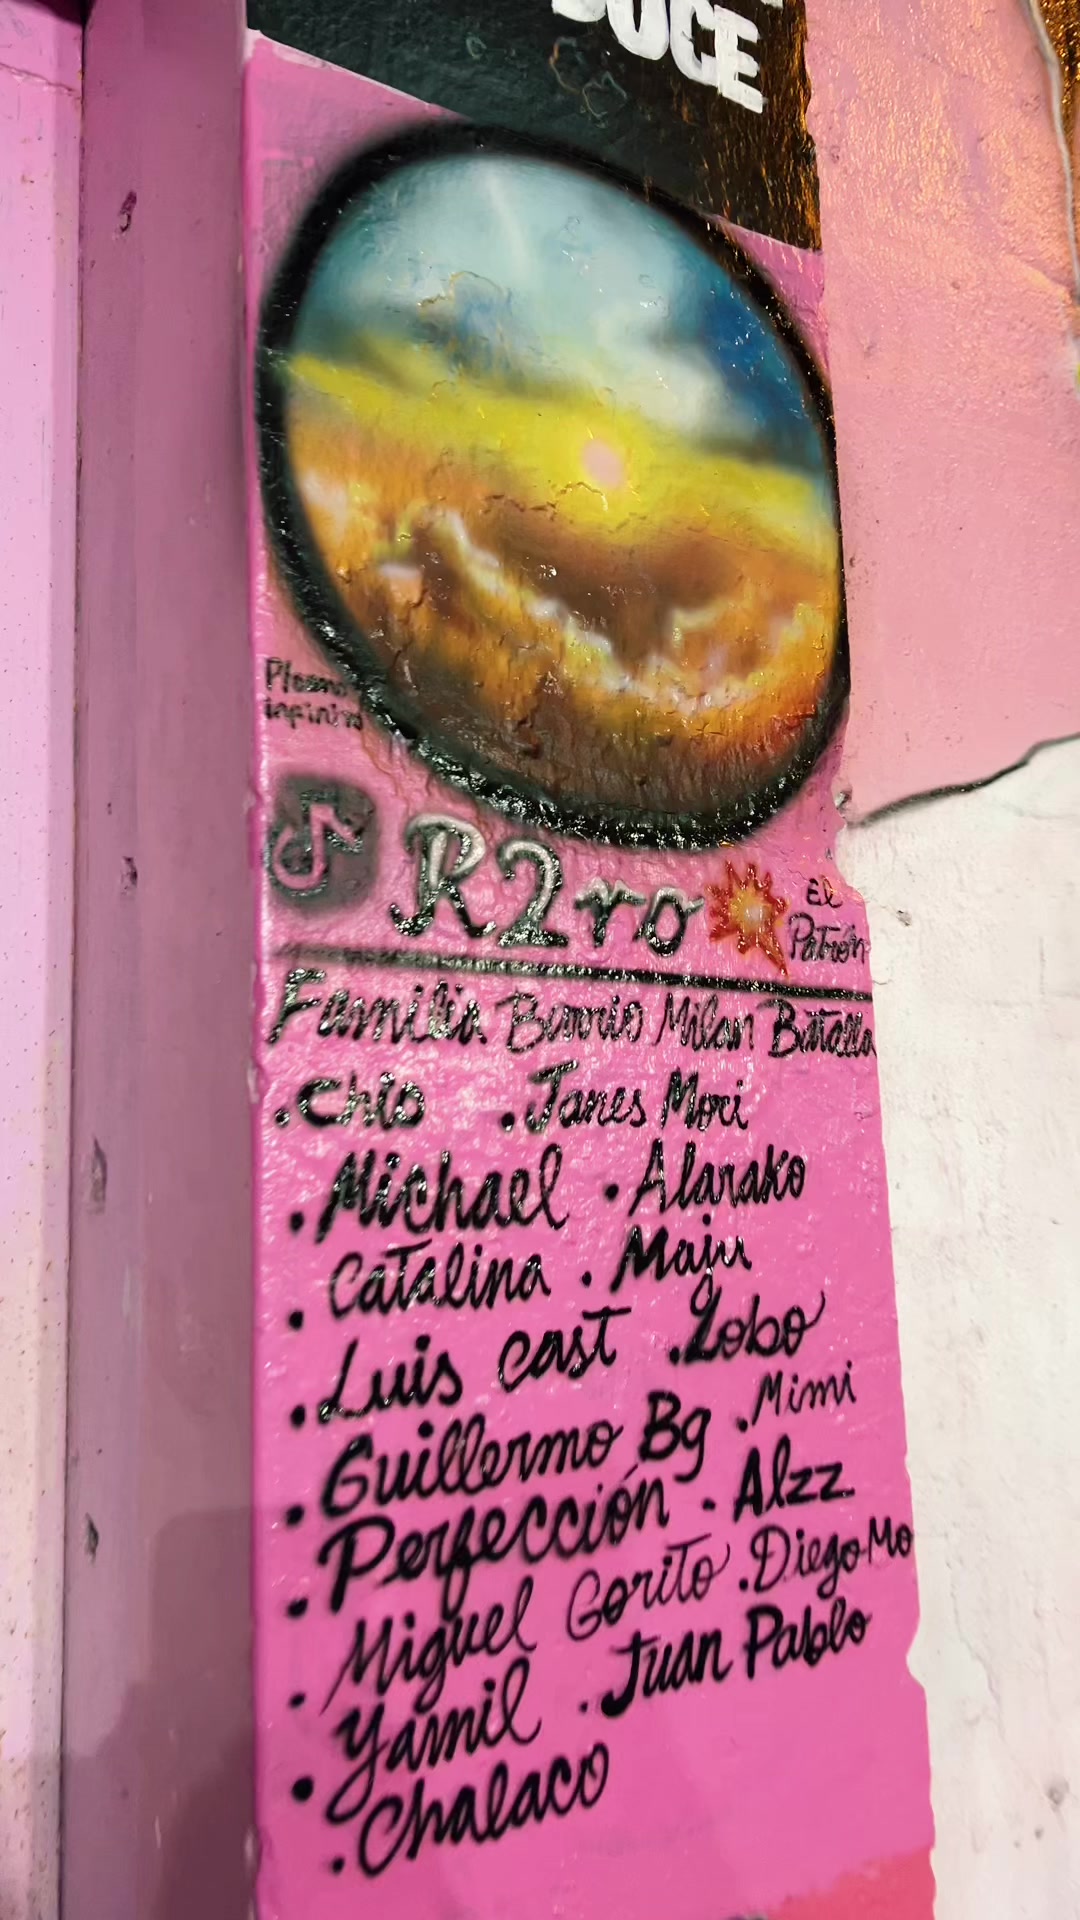 DUCE
infinito
R2ro
El
Patrón
Familia Barrio Milan Batalla
.Chio .Janes Mori
.Michael .Alarako
.Catalina .Maju
.Luis cast .Lobo
.Guillermo Bg .Mimi
.Perfección .Alzz
.Miguel Gorito .Diego Mo
.Yamil .Juan Pablo
.Chalaco